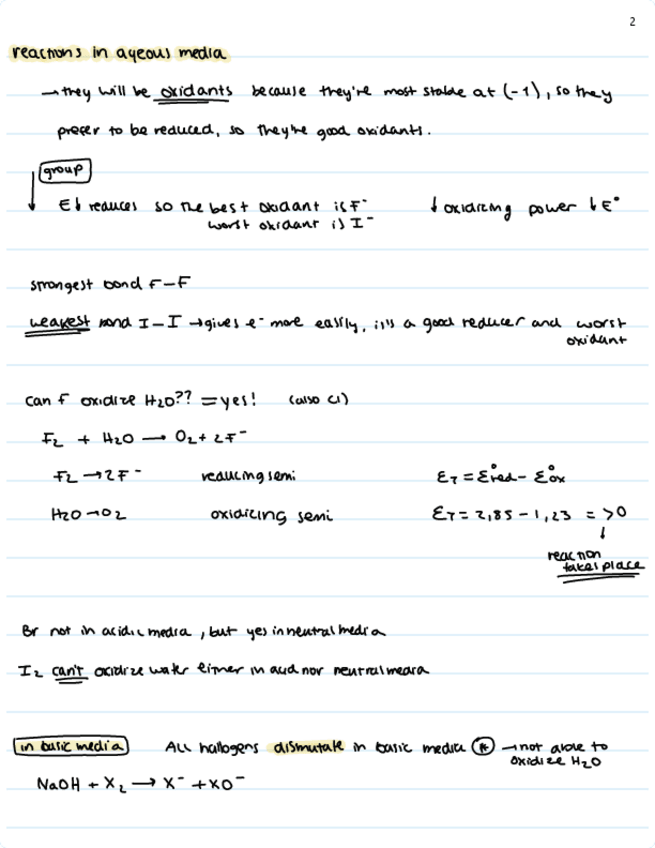 2
reactions in aqeous media
→ they will be oxidants because they're most stable at (-1), so they
prefer to be reduced, so they're good oxidants.
group
↓ E↓ reduces so the best oxidant is F⁻ ↓ oxidizing power ↓ E°
worst oxidant is I⁻
strongest bond F-F
weakest bond I-I → gives e⁻ more easily, it's a good reducer and worst
oxidant
can F oxidize H2O?? = yes! (also Cl)
F2 + H2O → O2 + 2F⁻
F2 → 2F⁻ reducing semi ET = E°red - E°ox
H2O → O2 oxidizing semi ET = 2,85 - 1,23 = >0
↓
reaction
takes place
Br not in acidic media, but yes in neutral media
I2 can't oxidize water either in acid nor neutral media
in basic media All hallogens dismutate in basic media * → not able to
oxidize H2O
NaOH + X2 → X⁻ + XO⁻